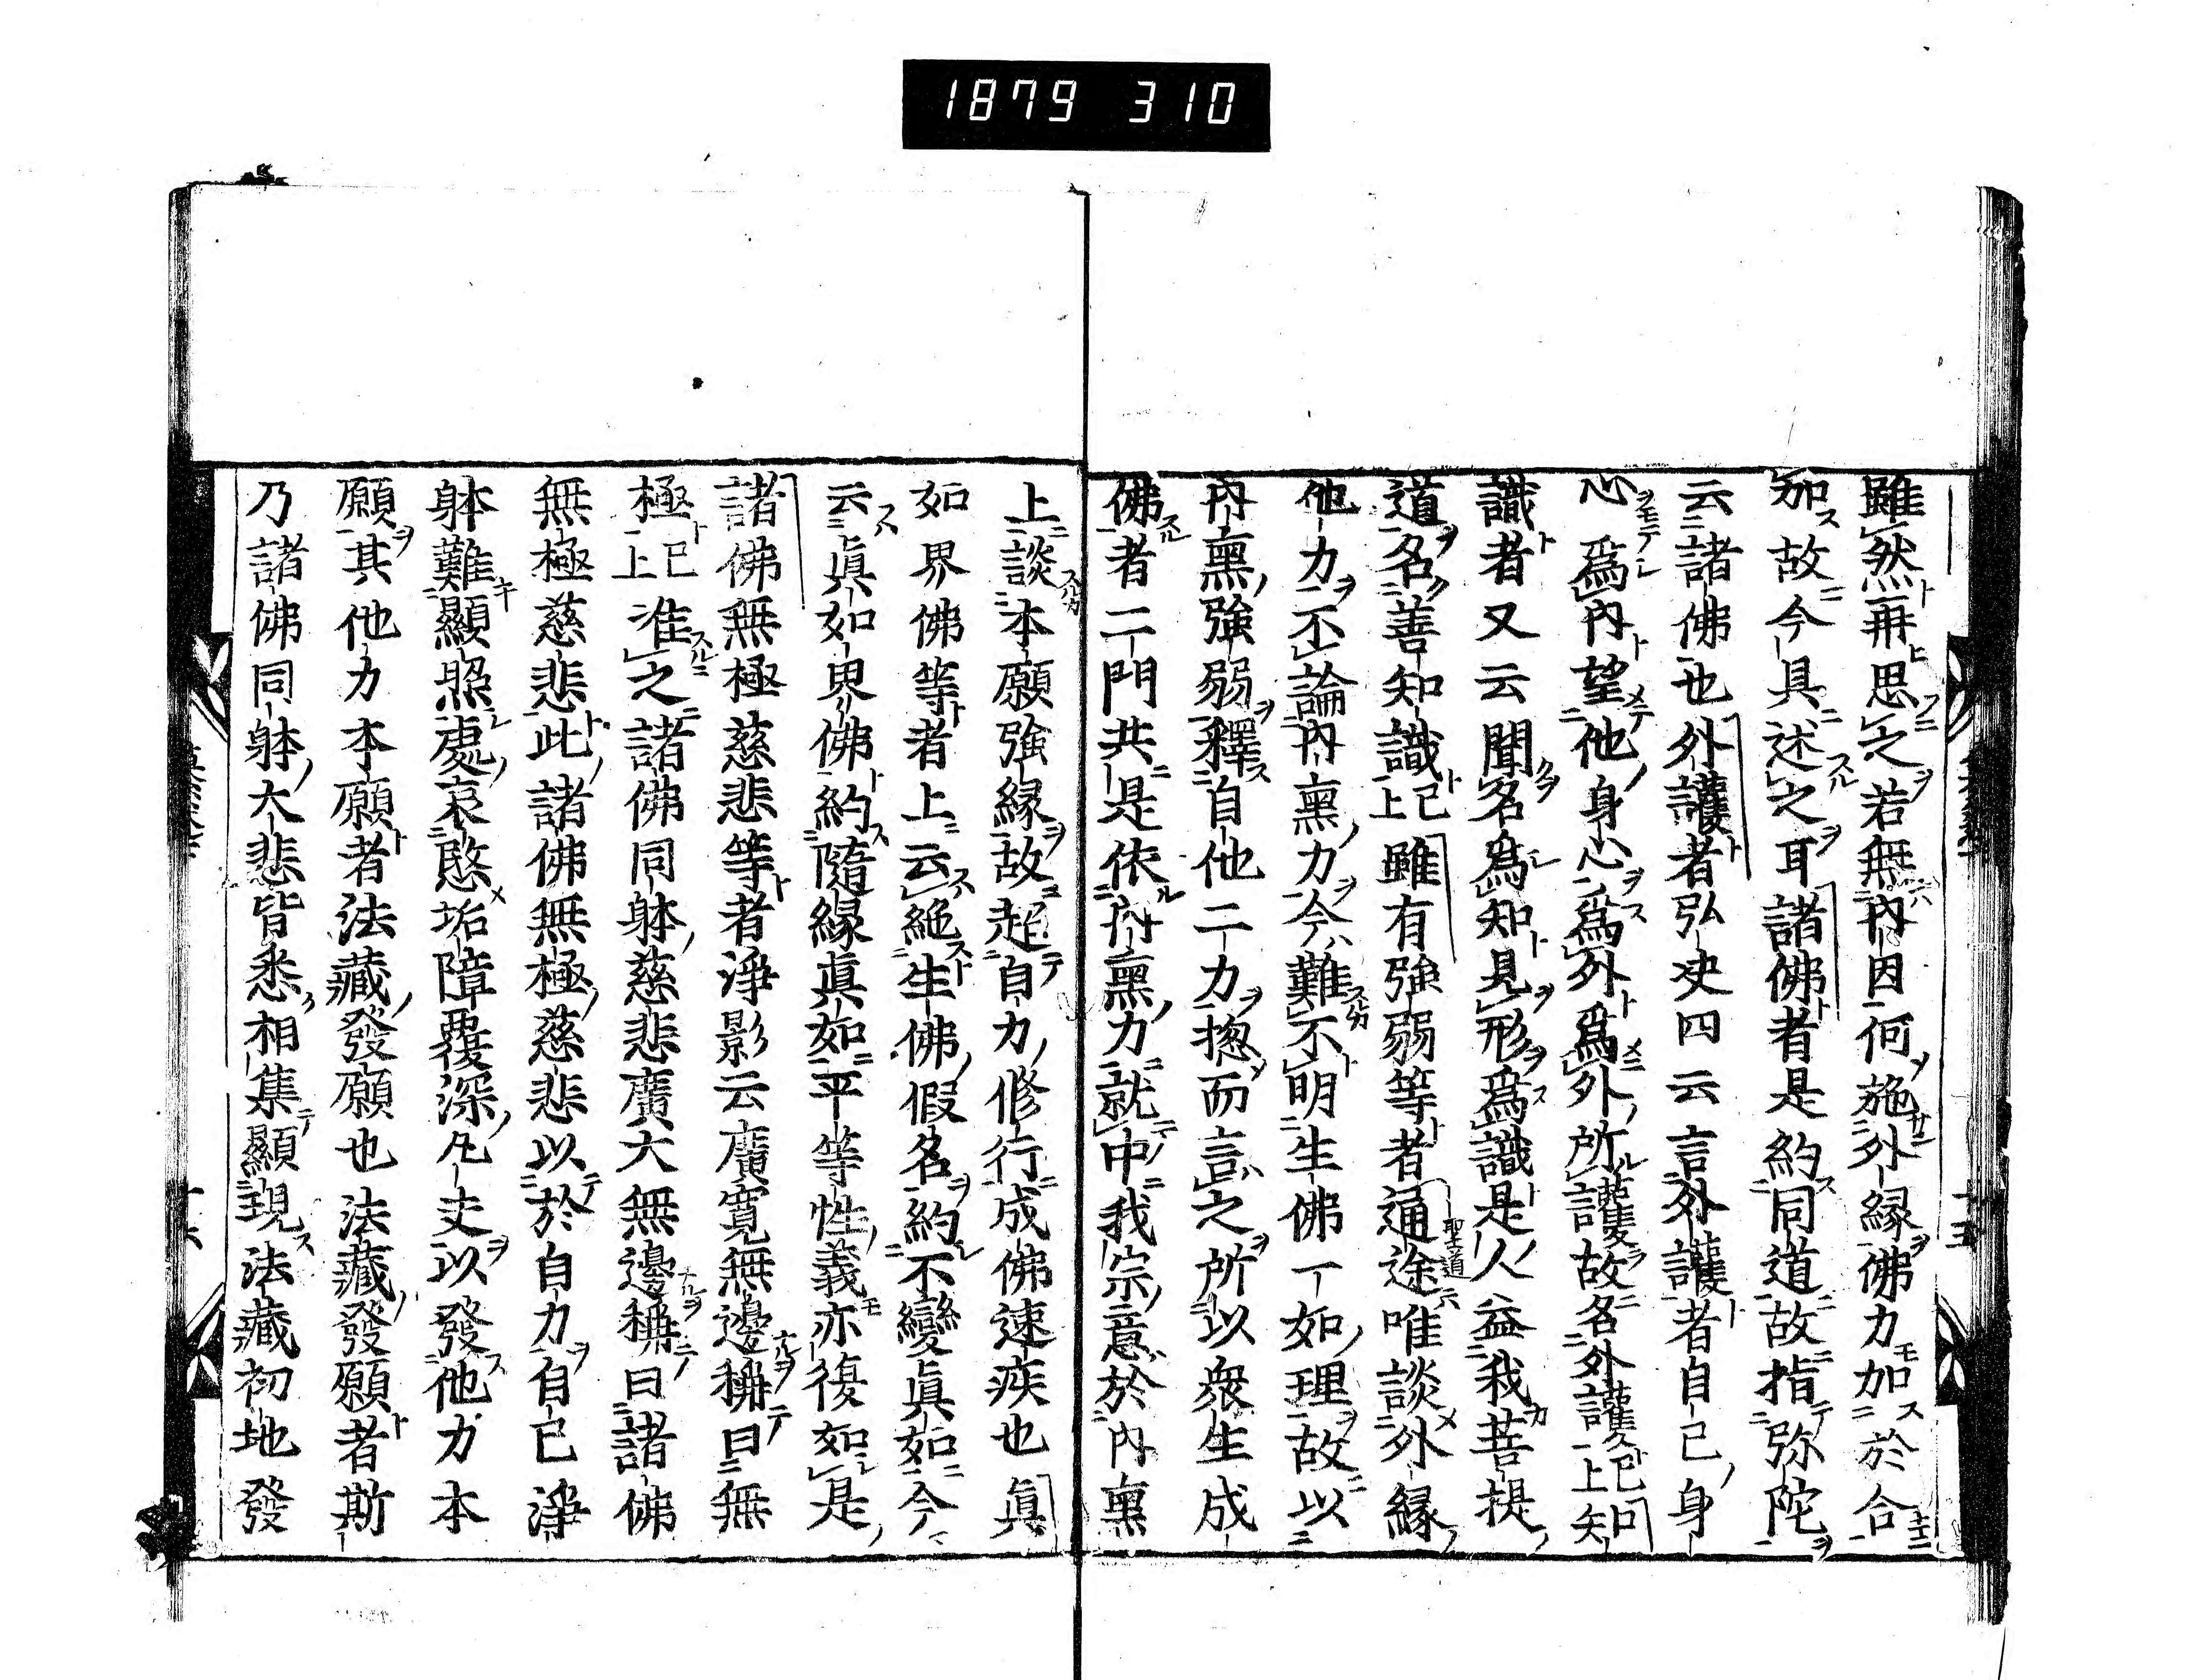 1879 310
雖然再思之若無內因何施外緣佛力加於合
加故今具述之耳諸佛者是約同道故指弥陀
云諸佛也外護者弘决四云言外護者自己身
心爲內望他身心爲外爲外所護故名外護已上知
識者又云聞名爲知見形爲識是人益我菩提
道名善知識已上雖有強弱等者通途聖道唯談外緣
他力不論內熏力今難不明生佛一如理故以
內熏強弱釋自他二力揔而言之所以衆生成
佛者二門共是依內熏力就中我宗意於內熏
上談本願強緣故超自力修行成佛速疾也眞
如界佛等者上云絕生佛假名約不變眞如今
云眞如界佛約隨緣眞如平等性義亦復如是
諸佛無極慈悲等者淨影云廣寬無邊稱曰無
極已上准之諸佛同躰慈悲廣大無邊稱曰諸佛
無極慈悲此諸佛無極慈悲以於自力自己淨
躰難顯照處哀愍垢障覆深凡夫以發他力本
願其他力本願者法藏發願也法藏發願者斯
乃諸佛同躰大悲皆悉相集顯現法藏初地發